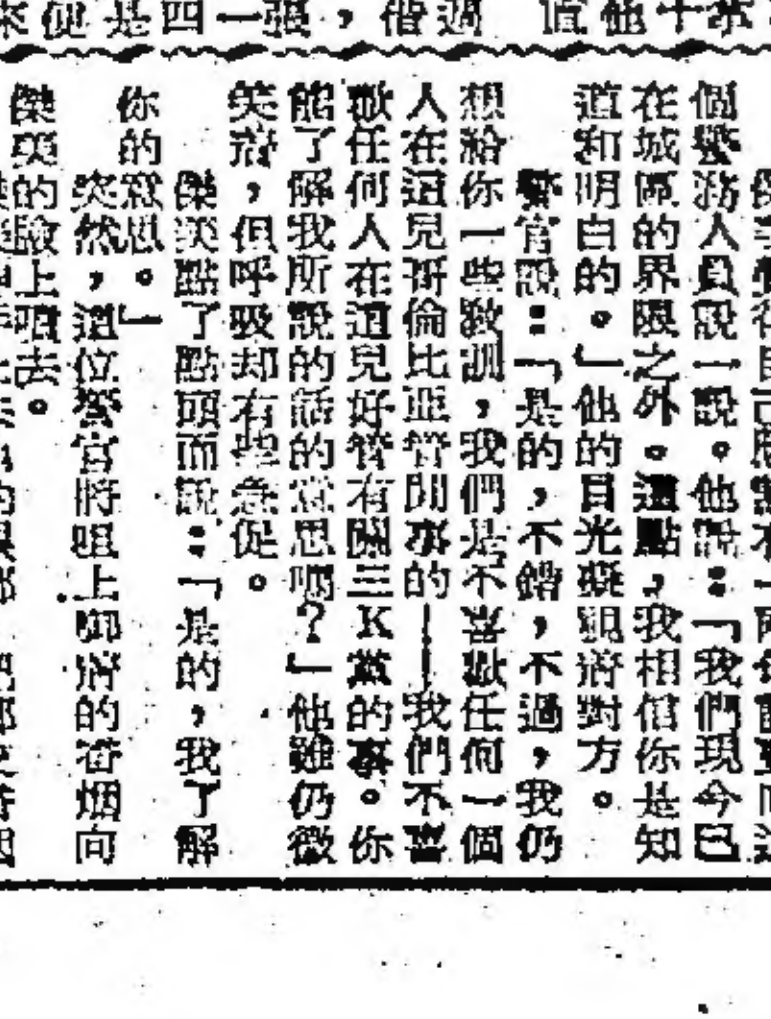 來便是四一張,借過 直他十常
個警務人員說一說。他說:「我們現今已
在城區的界限之外。這點,我相信你是知
道和明白的。」他的目光凝視着對方。
警官說:「是的,不錯,不過,我仍
想給你一些教訓,我們是不喜歡任何一個
人在這兒哥倫比亞管閒事的——我們不喜
歡任何人在這兒好管有關三K黨的事。你
能了解我所說的話的意思嗎?」他雖仍微
笑着,但呼吸却有些急促。
傑美點了點頭而說:「是的,我了解
你的意思。」
突然,這位警官將咀上啣着的香烟向
傑美的臉上噴去。